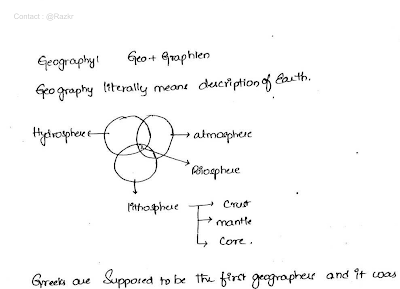 Contact : @Razkr
Geography! Geo + Graphien
Geography literally means description of Earth.
Hydrosphere
atmosphere
Biosphere
lithosphere
Crust
mantle
Core.
Greeks are Supposed to be the first geographers and it was